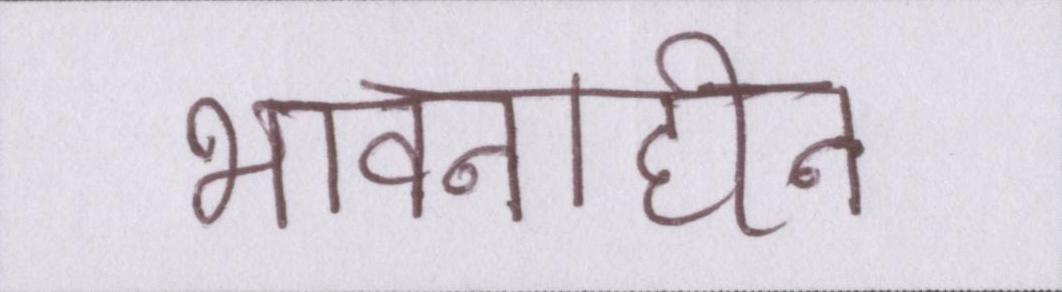 भावनाहीन